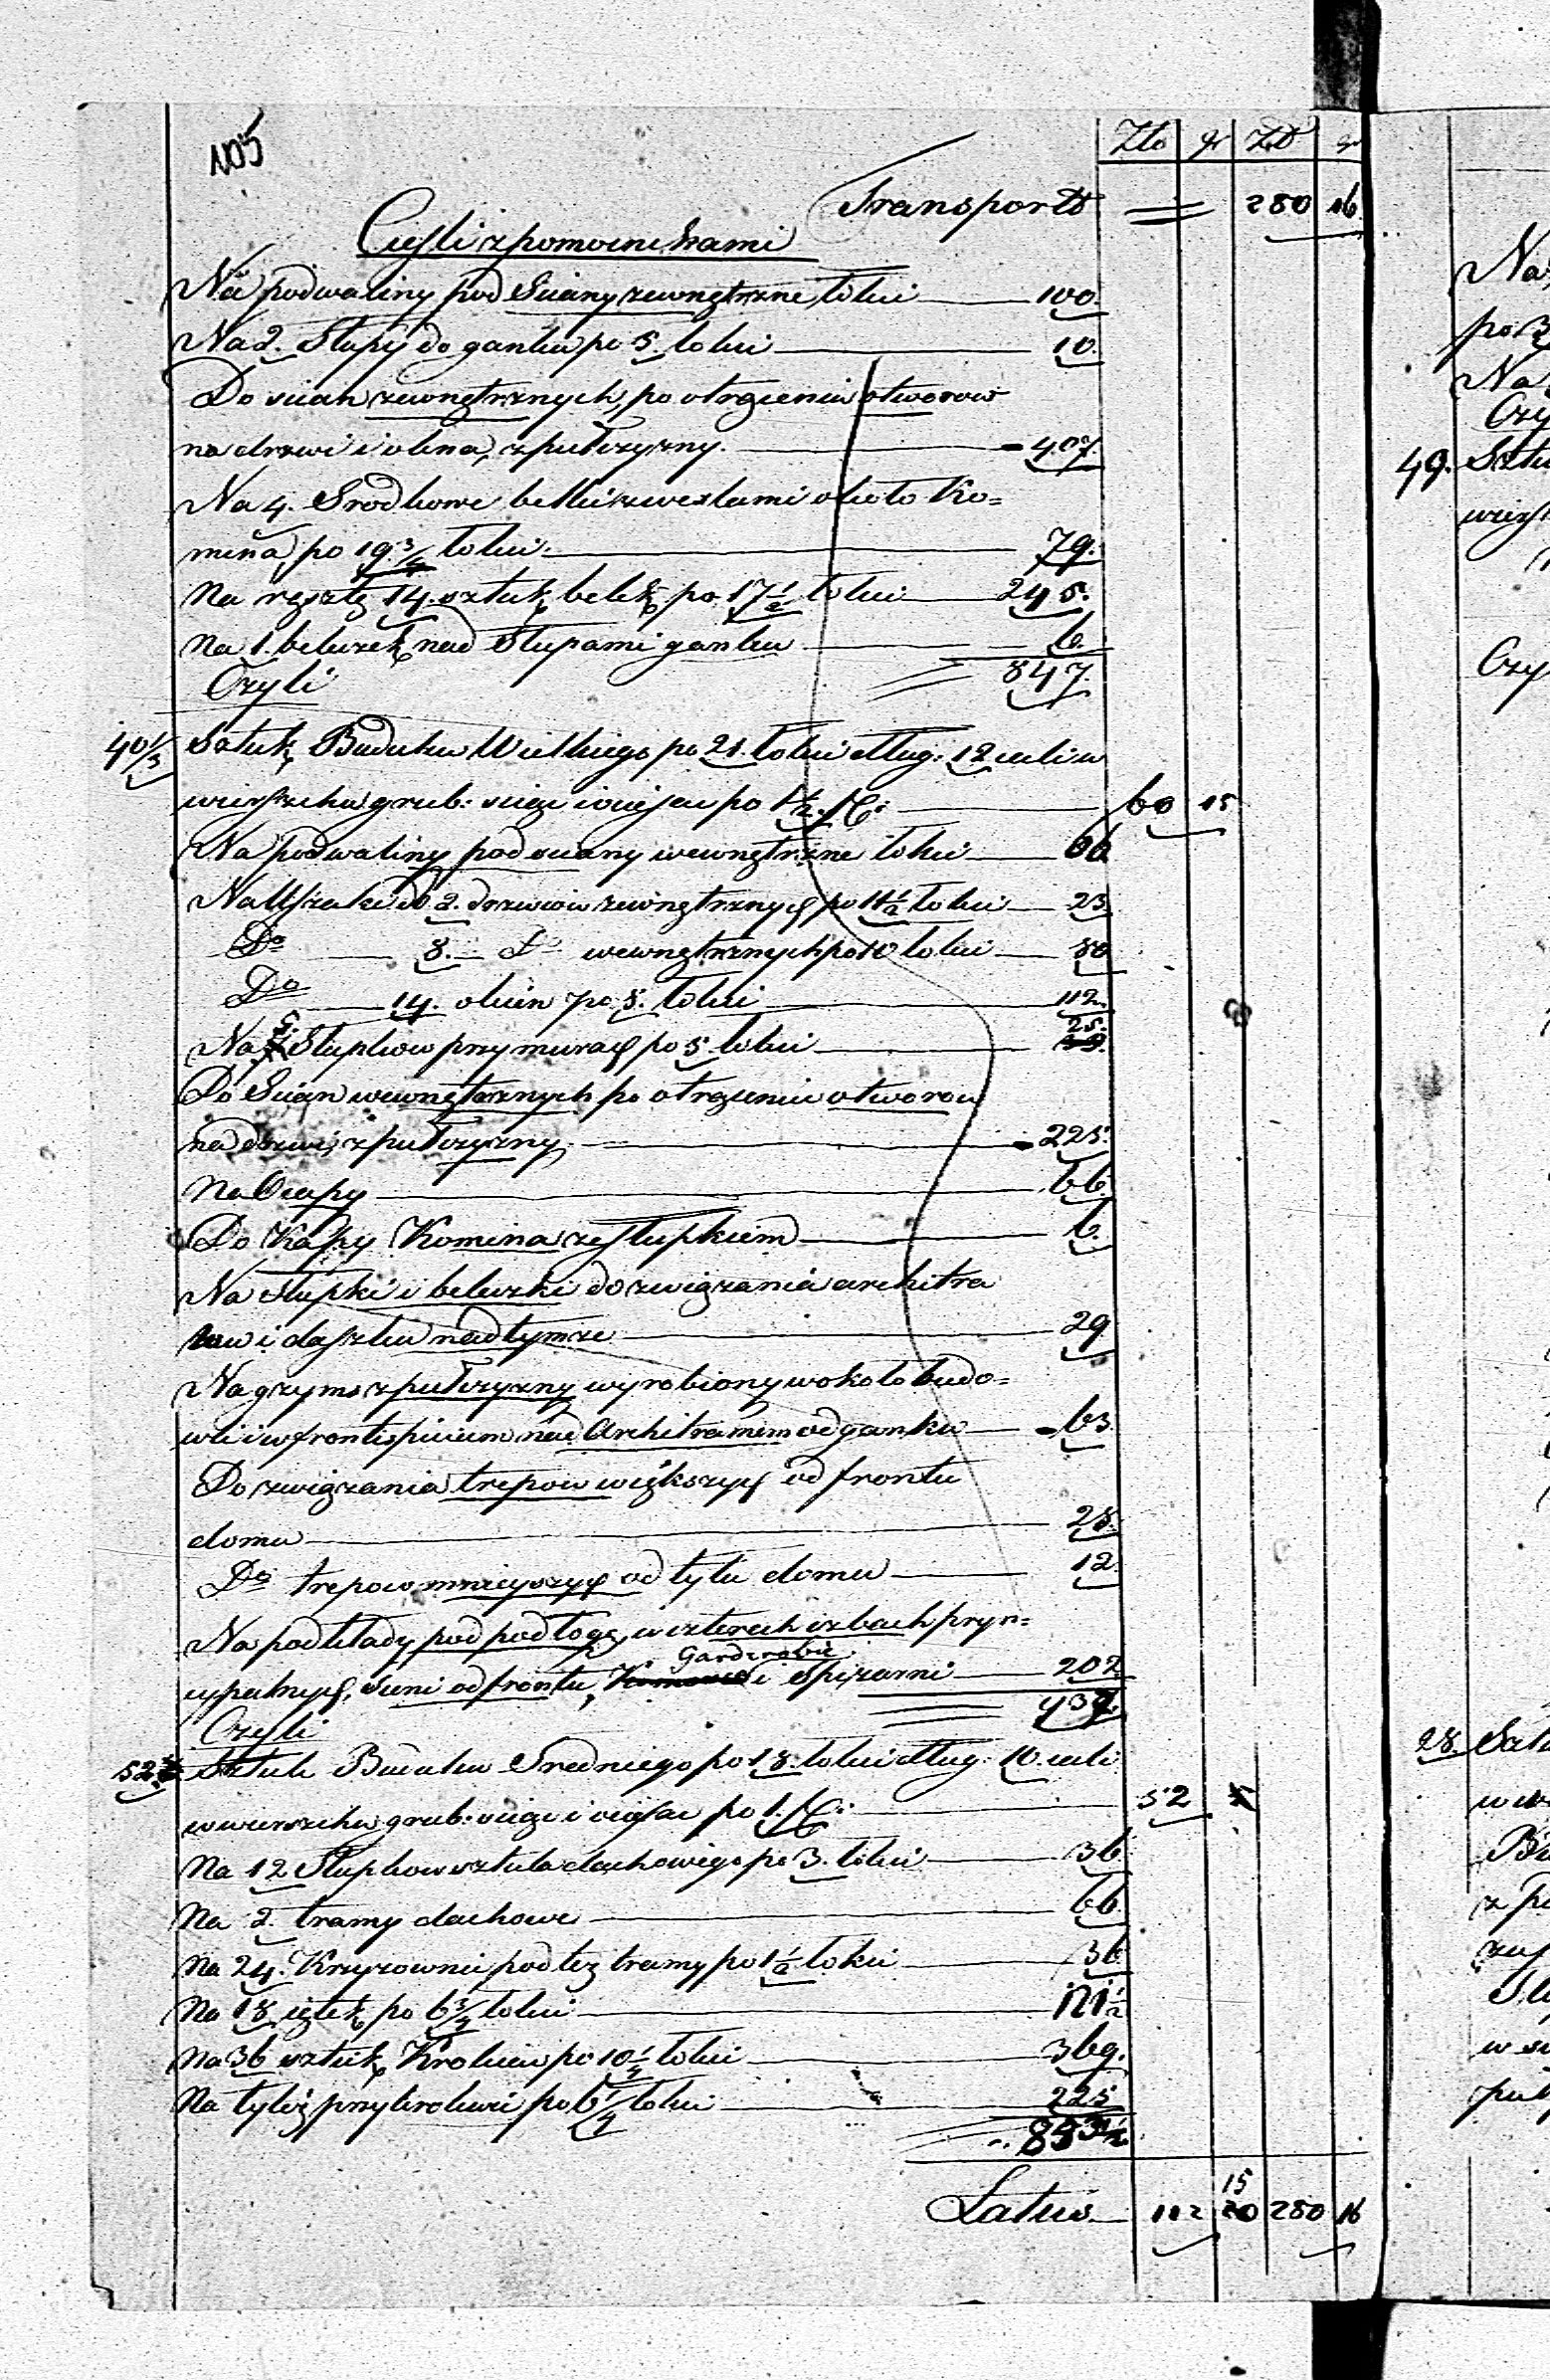 105
Zło gr Złt gr
Transport = 280 16.
Cieśli z pomocnikami
Na podwaliny pod Sciany zewnętrzne, łokci 100.
Na 2. Słupy do ganku po 5. łokci 10.
Do scian zewnętrznych, po otrąceniu otworow
na drzwi i okna, z putrzyzny. 407.
Na 4. Srodkowe belki z wexlami około Ko=
mina, po 19 3/4 łokci. 79.
Na resztę 14. sztuk belek po 17 1/2 łokci 245.
Na 1. beleczek nad Słupami ganku 6.
Czyli = 847.
40 1/3 Sztuk Budulcu Wielkiego po 21. łokci dług: 12 cali w
wierszchu grub: sciąć i ociosać po 1 1/2. 60 15
Na podwaliny pod sciany wewnętrzne łokci 66
Na Uszaki do 2. drzwiow zewnętrznych po 11 1/2 łokci 23
Do 8. Do wewnętrznych po 10 łokci 80
Do 14. okien po 8. łokci 112.
Na 5. Słupkow przy murach po 5. łokci 25.
Do Scian wewnętrznych po otrąceniu otworow
na drzwi, z putrzyzny. 225.
Na Oczapy 66.
Do Kapy Komina ze Słupkiem 6.
Na Słupki i beleczki do związania architra
wow i daszku nad tymże 29
Na gzyms z putrzyzny wyrobiony wokoło budo=
wli i w frontispicium nad Architrawem od ganku 63.
Do związania trepow większych od frontu
domu 28.
Do trepow mnieyszych od tyłu domu 12.
Na podkłady pod podłogę, w czterech izbach pryn=
Garderobie
cypalnych, Sieni od frontu, i Spiżarni 202
Czyli = 937.
52 Sztuk Budulcu Sredniego po 18. łokci dług. 10. cali
w wierszchu grub: sciąć i ociosać po 1. 52
Na 12 Słupkow sztula dachowego po 3. łokci 36
Na 2. tramy dachowe 66.
Na 24. Krzyzownic pod też tramy po 1 1/2 łokci 36
Na 18. iętek po 6 3/4 łokci 121 1/2
Na 36 sztuk Krokiew po 10 1/4 łokci 369.
Na tyleż przykrokwi po 6 1/4 łokci 225
853 1/2
15
Latus 112 20 280 16
Na
po 3
Na
Czy
49. Sztu
wiersz
Czy
28. Sztu
w w
z p
w s